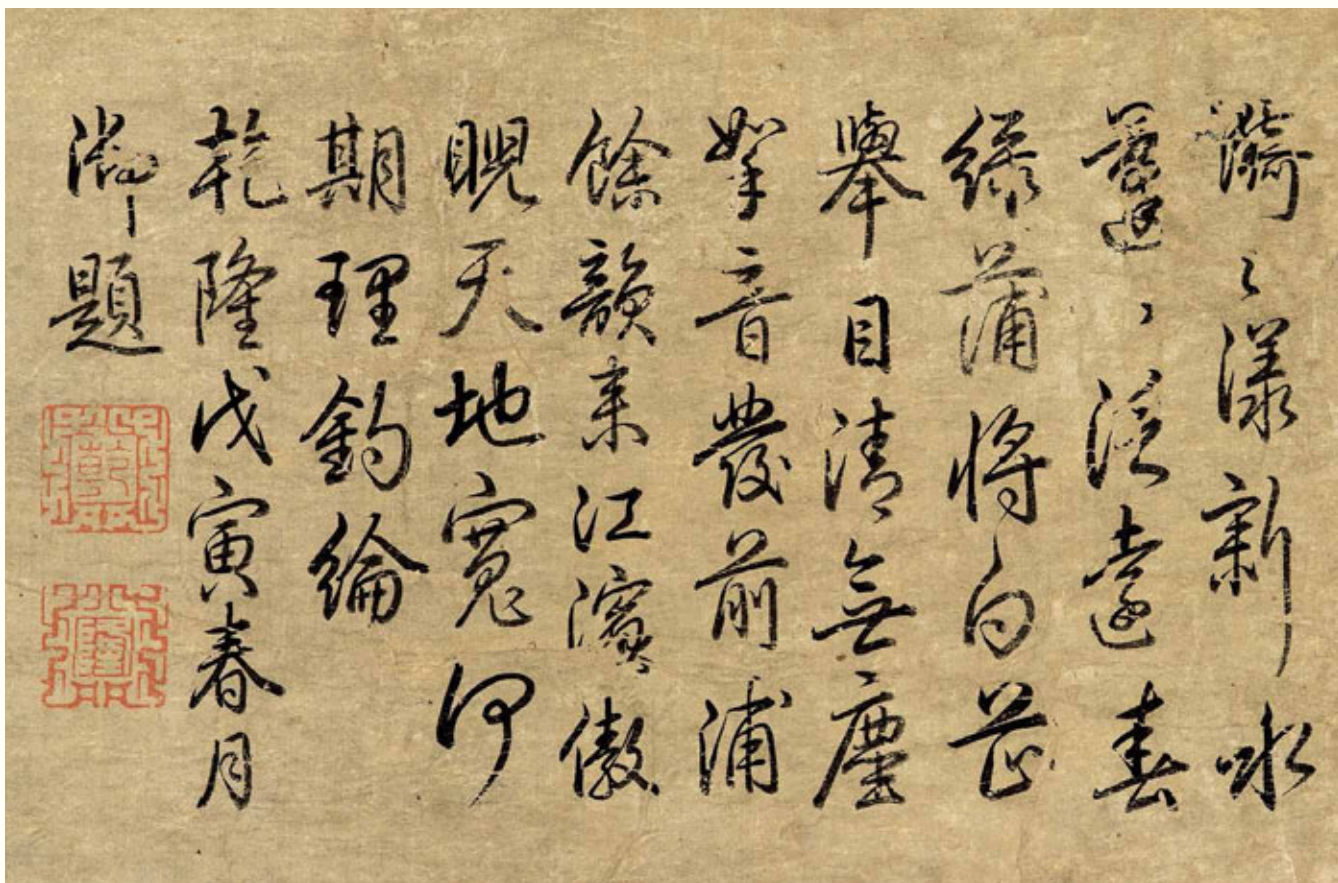 漪〻漾新水
〻淡遠春
綠蒲將白芷
舉目清無塵
挐音發前浦
餘韻来江濱傲
睨天地寬何
期理釣綸
乾隆戊寅春月
御題
乾
隆